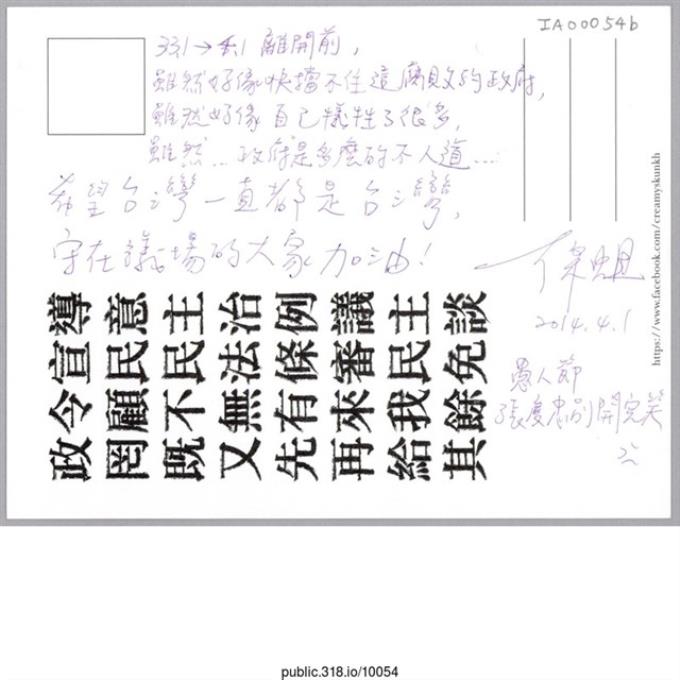 IA00054b
331→4.1 離開前，
雖然好像快擋不住這腐敗的政府，
雖然好像自己犧牲了很多，
雖然…政府是多麼的不人道…
希望台灣一直都是台灣，
守在議場的大家加油！
2014.4.1
愚人節
別開完笑
https://www.facebook.com/creamyskunkh
政令宣導
罔顧民意
既不民主
又無法治
先有條例
再來審議
給我民主
其餘免談
public.318.io/10054